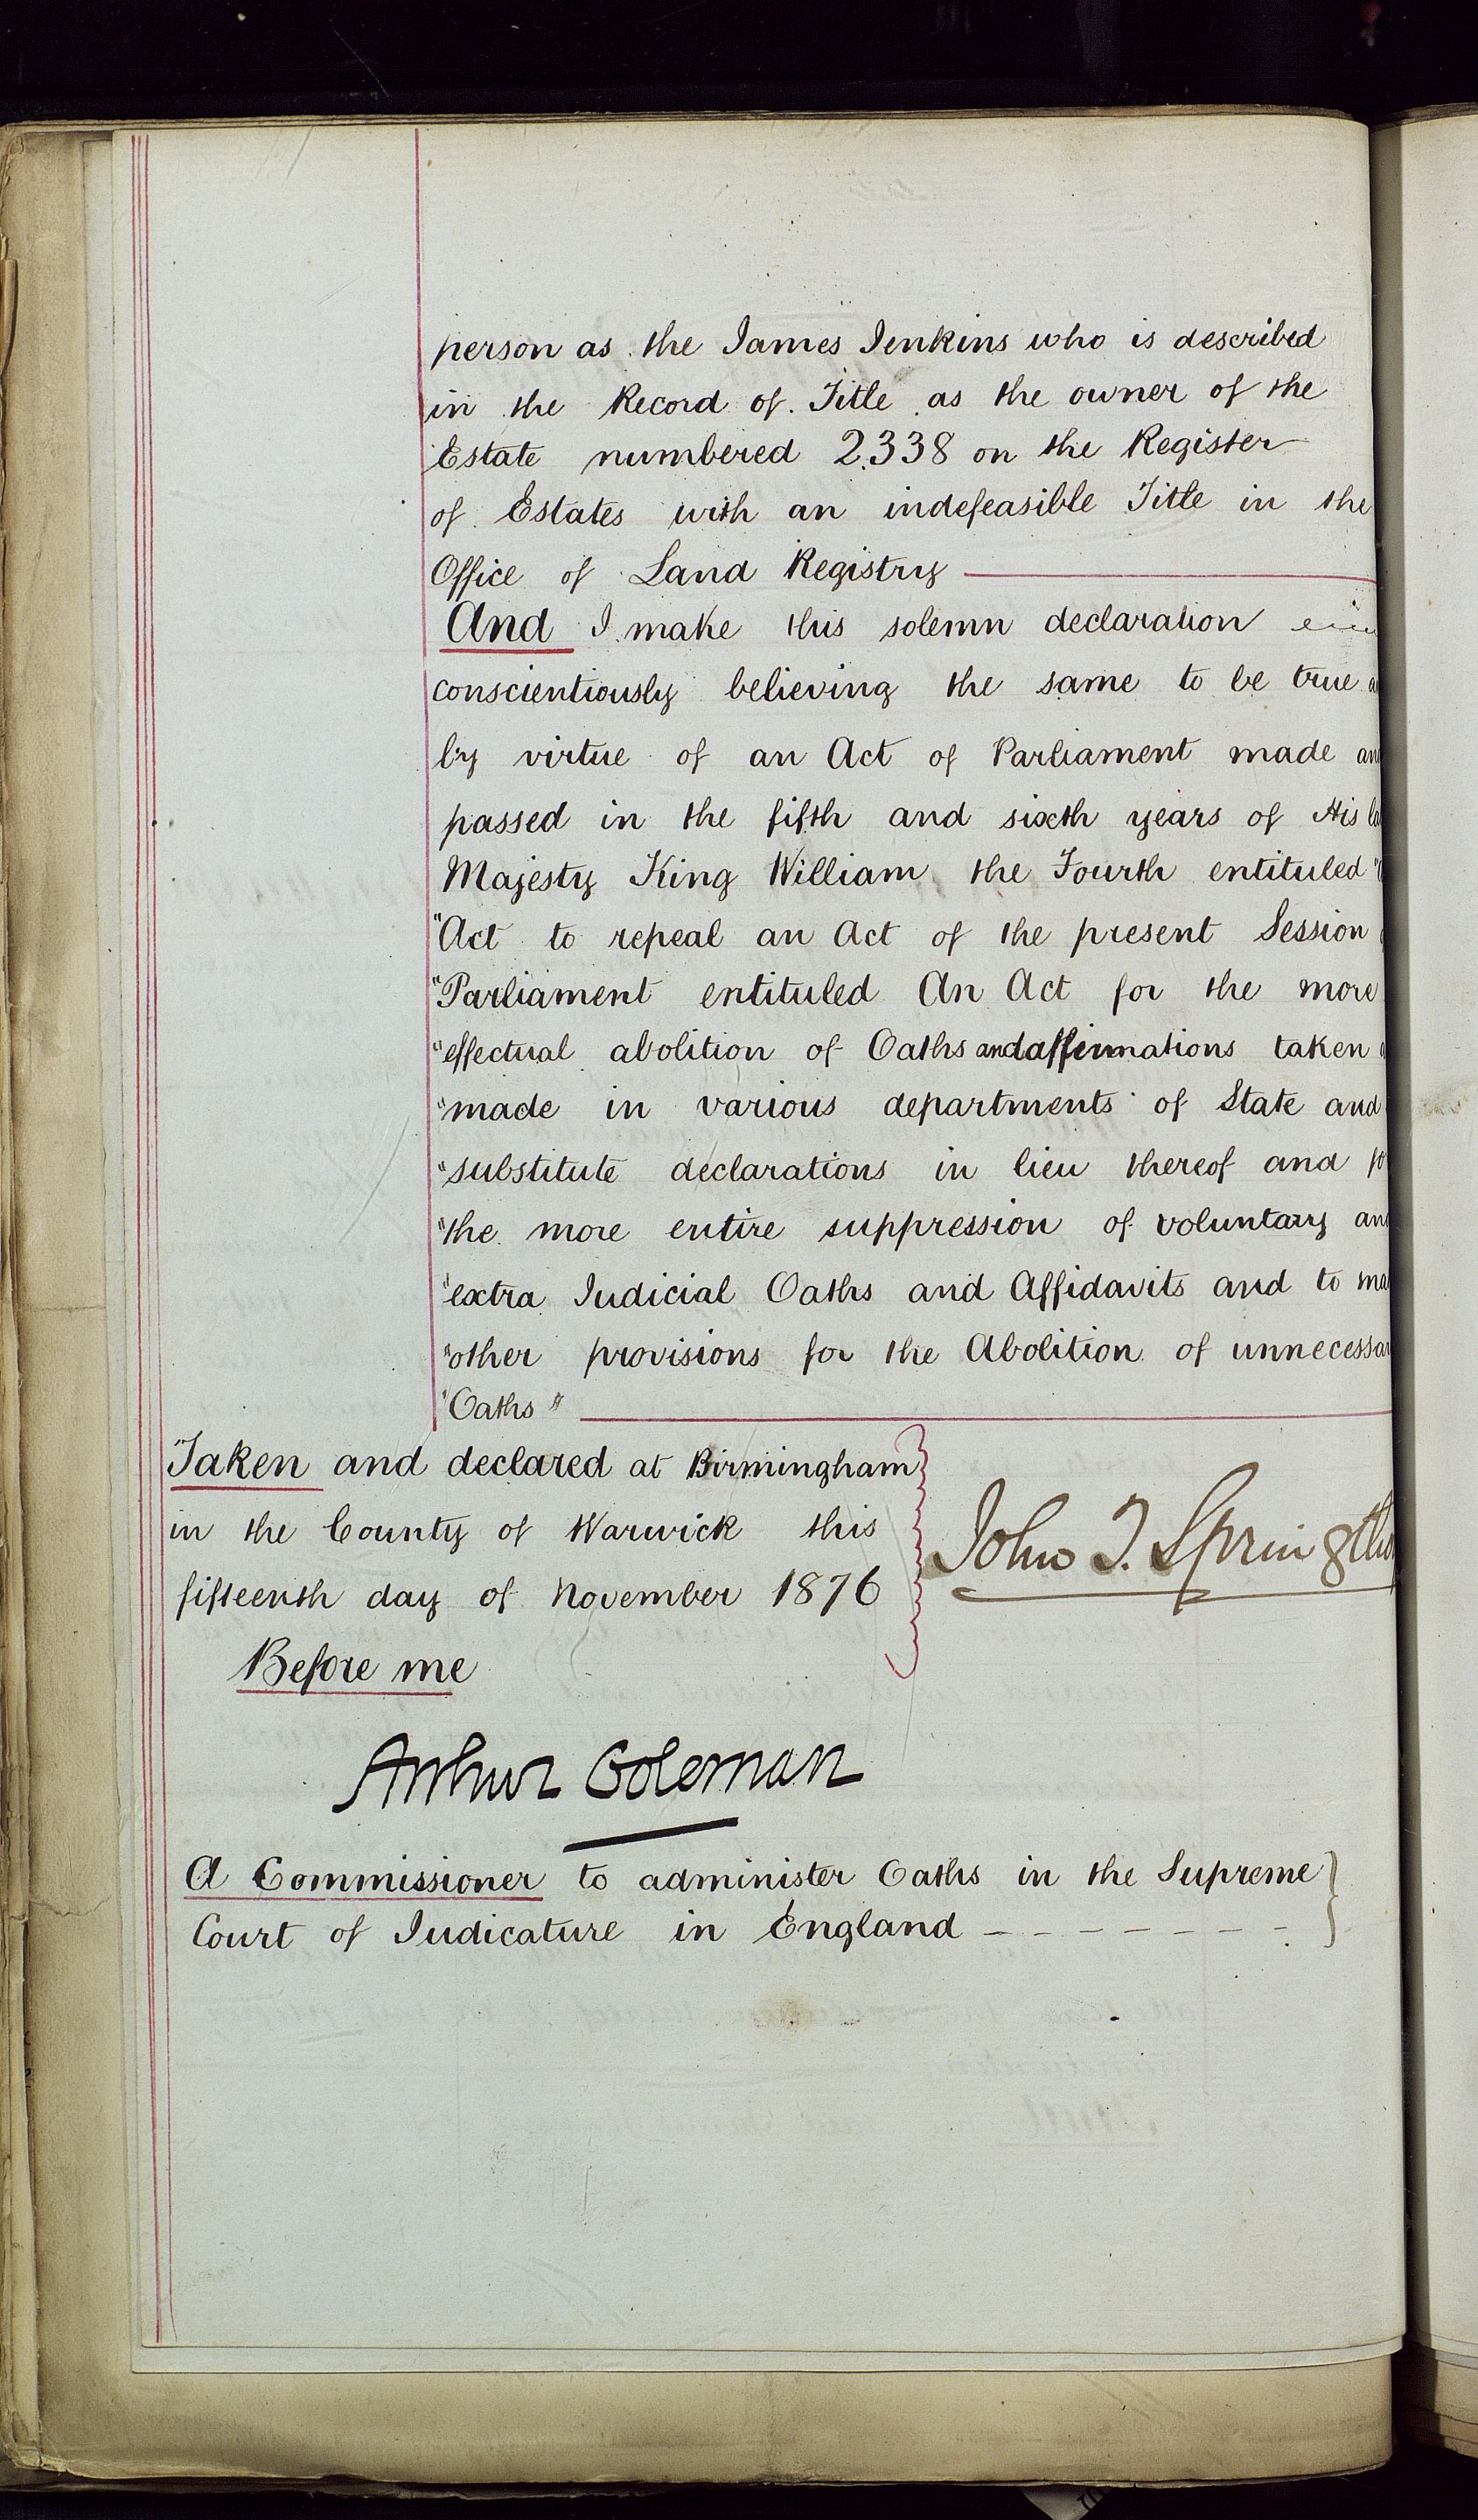 person as the James Jenkins who is described
in the Record of Title as the owner of the
Estate numbered 2338 on the Register
of Estates with an indefeasible Title in the
Office of Land Registry
And I make this solemn declaration
conscientiously believing the same to be true
by virtue of an Act of Parliament made
passed in the fifth and sixth years of His
Majesty King William the Fourth entituled
"Act to repeal an Act of the present Session
"Parliament entituled An Act for the more
"effectual abolition of Oaths and affirmations taken
"made in various departments of State and
"substitute declarations in lieu thereof and
"the more entire suppression of voluntary
"extra Judicial Oaths and Affidavits and to
"other provisions for the Abolition of
"Oaths"
Taken and declared at Birmingham
in the County of Warwick this
fifteenth day of November 1876
John T. Springtho
Before me
Arthur Coleman
A Commissioner to administer Oaths in the Supreme
Court of Judicature in England